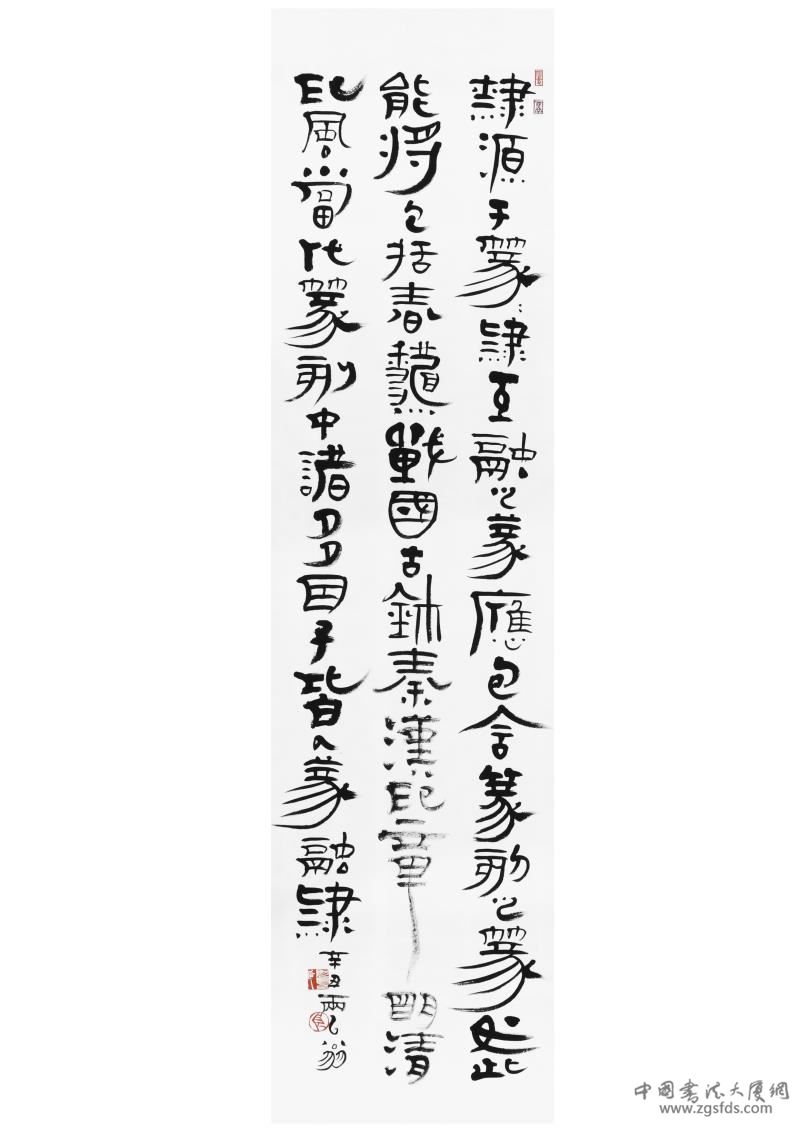 隸源于篆:隸互融之篆應包含篆刻之篆如此
能將包括春龝戰國古鉩秦漢印章明清
印風當代篆刻中諸多因子皆入篆融隸
辛丑 翁
中國書法大廈網
www.zgsfds.com